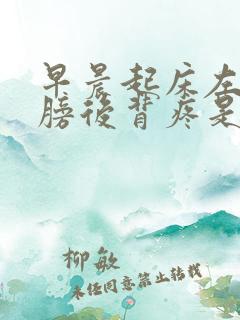 早晨起床左
膀后背疼是
柳敏
未经同意禁止转载